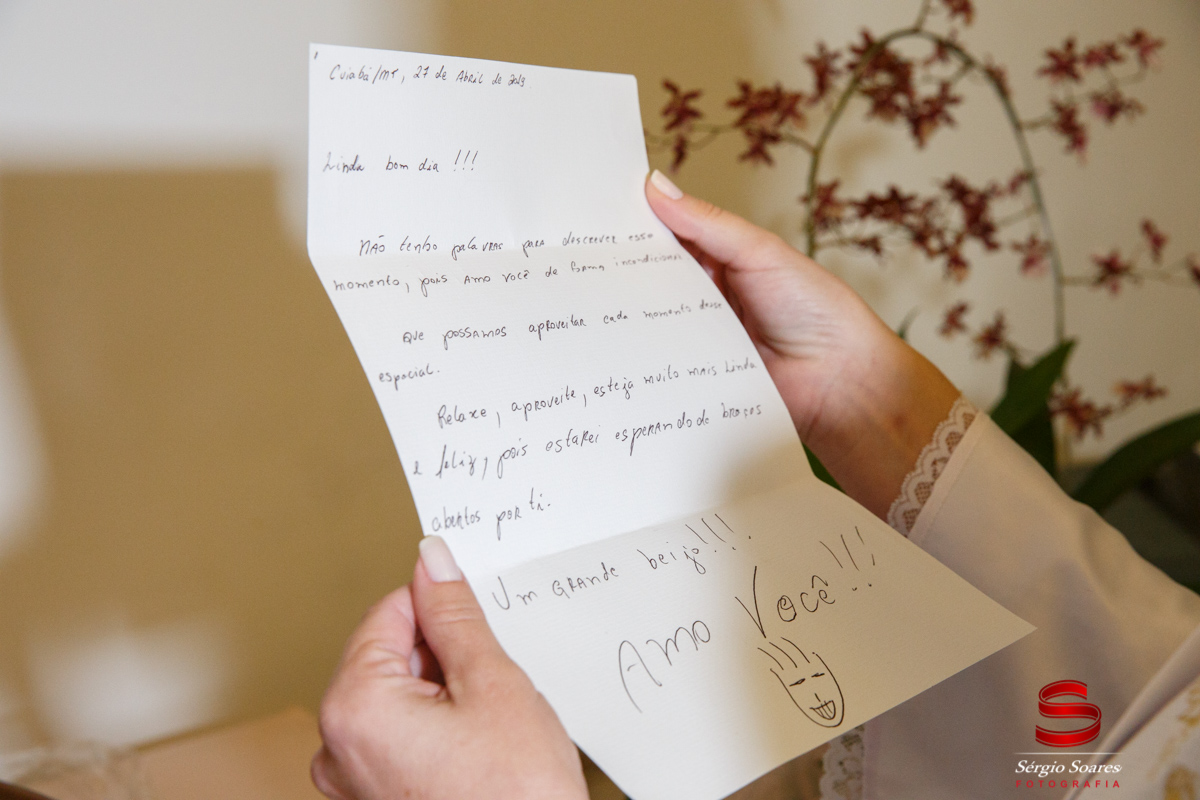 Cuiabá/MT, 27 de Abril de 2013
Linda bom dia !!!
NÃO tenho palavras para descrever esse
momento, pois Amo você de forma incondicional
Que possamos aproveitar cada momento desse
especial.
Relaxe, aproveite, esteja muito mais linda
e feliz, pois estarei esperando de braços
abertos por ti.
Um GRANDE beijo!!!
Amo Você!!!
Sérgio Soares
FOTOGRAFIA